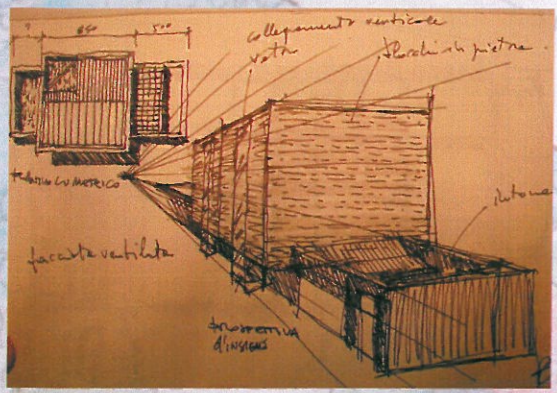 ? 850 500
collegamento verticale
vetro
blocchi in pietra
PLANIVOLUMETRICO
facciata ventilata
PROSPETTIVA
d'INSIEME